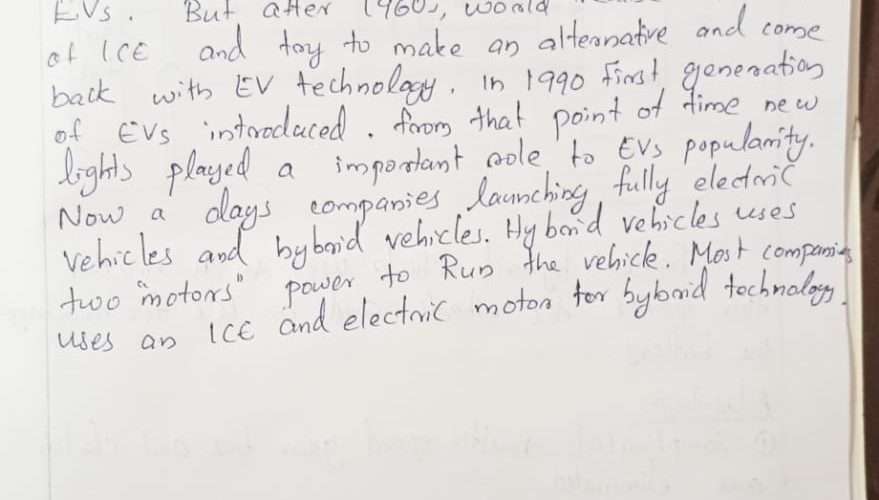 EVs. But after 1960s, world
of ICE and try to make an alternative and come
back with EV technology. In 1990 first generation
of EVs introduced. from that point of time new
lights played a important role to EVs popularity.
Now a days companies launching fully electric
vehicles and hybrid vehicles. Hybrid vehicles uses
two "motors" power to Run the vehicle. Most companies
uses an ICE and electric motor for hybrid technology.